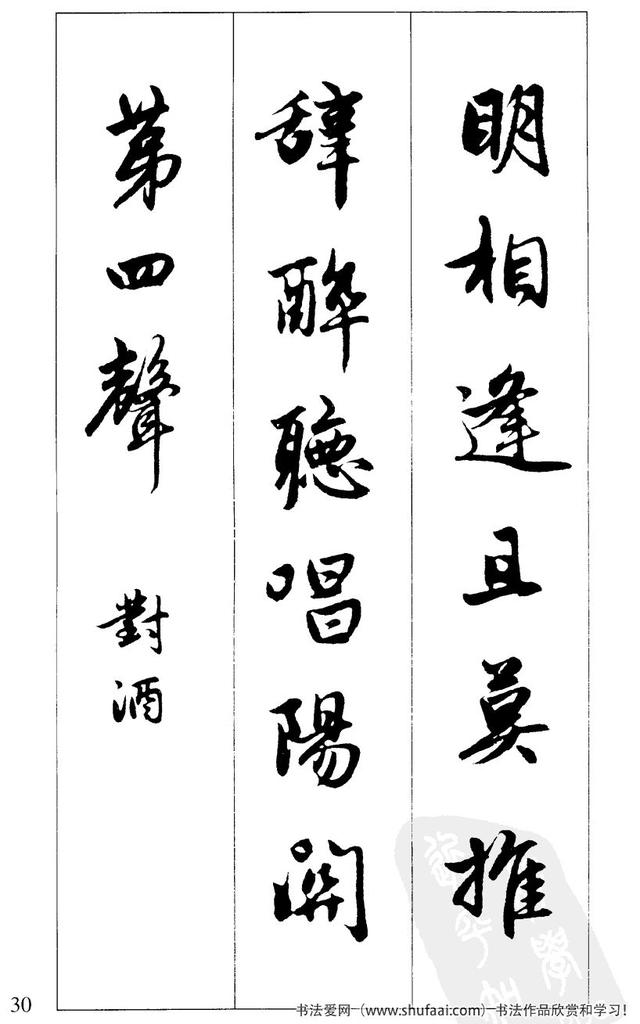 明相逢且莫推
辞醉聽唱陽関
苐四聲 對酒
30
书法爱网（www.shufaai.com）书法作品欣赏和学习！